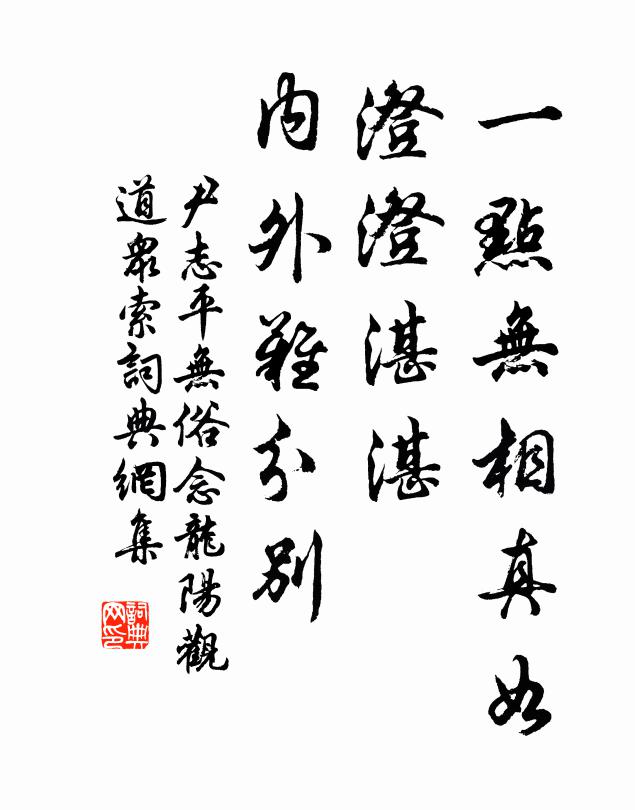 一點無相真如
澄澄湛湛
内外難分別
尹志平無俗念龍陽觀
道衆索詞典網集
詞典
网印